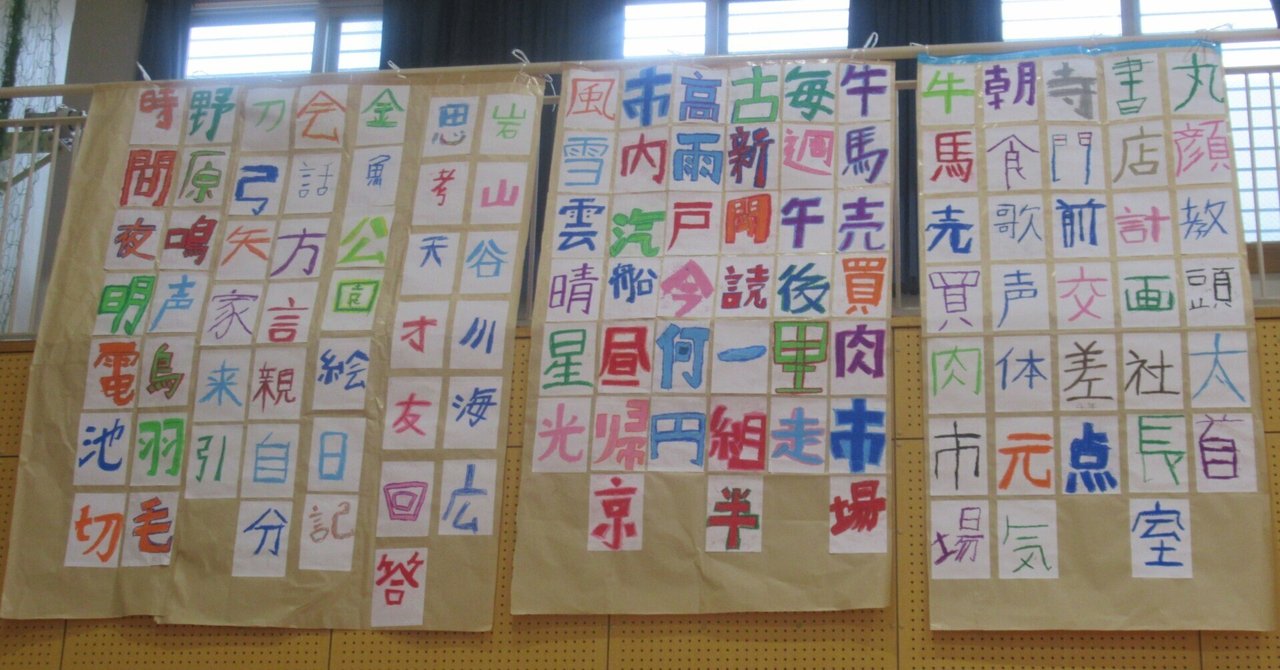 丸顔教頭太首
書店計画社長室
寺門前交差点
朝食歌声体元気
牛馬売買肉市場
牛馬売買肉市場
毎週午後里走
古新聞読一組半
高雨戸今何円
市内汽船昼帰京
風雪雲晴星光
岩山谷川海広
思考天才友回答
金魚公園絵日記
会話方言親自分
刀弓矢家来引
野原鳴声鳥羽毛
時間夜明電池切